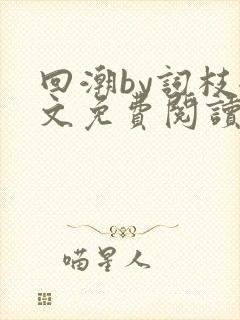 回潮by詞枝
文免費閱讀
喵星人